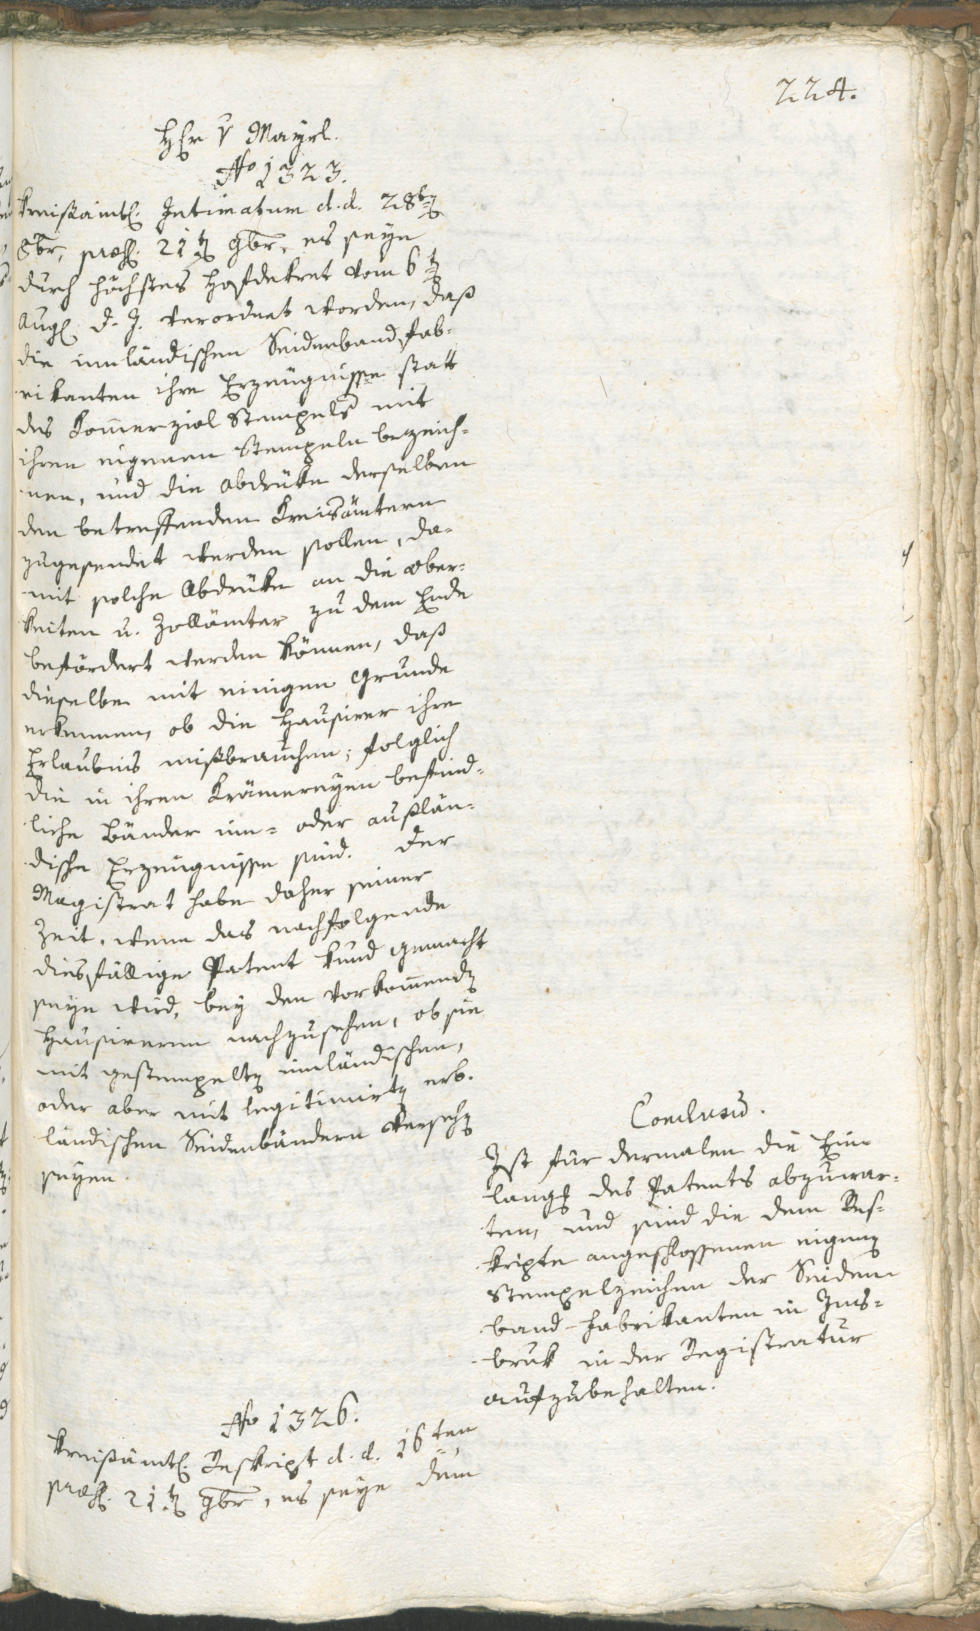 224.
HEr v Mayrl.
No 1323.
Kreisämtl. Intimatum d. d. 28t
8br, præs. 21t 9br, es seye
durch höchstes Hofdekret vom 6t
Aug. d. J. verordnet worden, daß
die innländischen Seidenband fab-
rikanten ihre Erzeügnisse statt
des Kom̄erzial Stempels mit
ihren eigenen Stempeln bezeich-
nen, und die Abdrüke derselben
den betreffenden Kreisämtern
zugesendet werden sollen, da-
mit solche Abdrüke an die ober-
keiten u. Zollämter zu dem Ende
befördert werden können, daß
dieselbe mit einigen Grunde
erkennen, ob die Hausirer ihre
Erlaubnis mißbrauchen; folglich
die in ihren Krämereyen befind-
liche Bänder inn- oder außlän-
dische Erzeügnisse sind. der
Magistrat habe daher seiner
Zeit, wenn das nachfolgende
diesfällige Patent kund gemacht
seyn wird, bey den vorkom̄enden
Hausirern nachzusehen, ob sie
mit gestempelten innländischen,
oder aber mit legitimirten erb-
ländischen Seidenbändern versehen
seyen.
Conclusum.
Ist für dermalen die Ein-
langung des Patents abzuwar-
ten, und sind die dem Res-
kripte angeschlossenen eigenen
Stempelzeichen der Seiden
band-Fabrikanten in Ins-
bruk in der Registratur
aufzubehalten.
No 1326.
Kreisämtl. Reskript d. d. 16ten
præs. 21t 9br, es seye dem